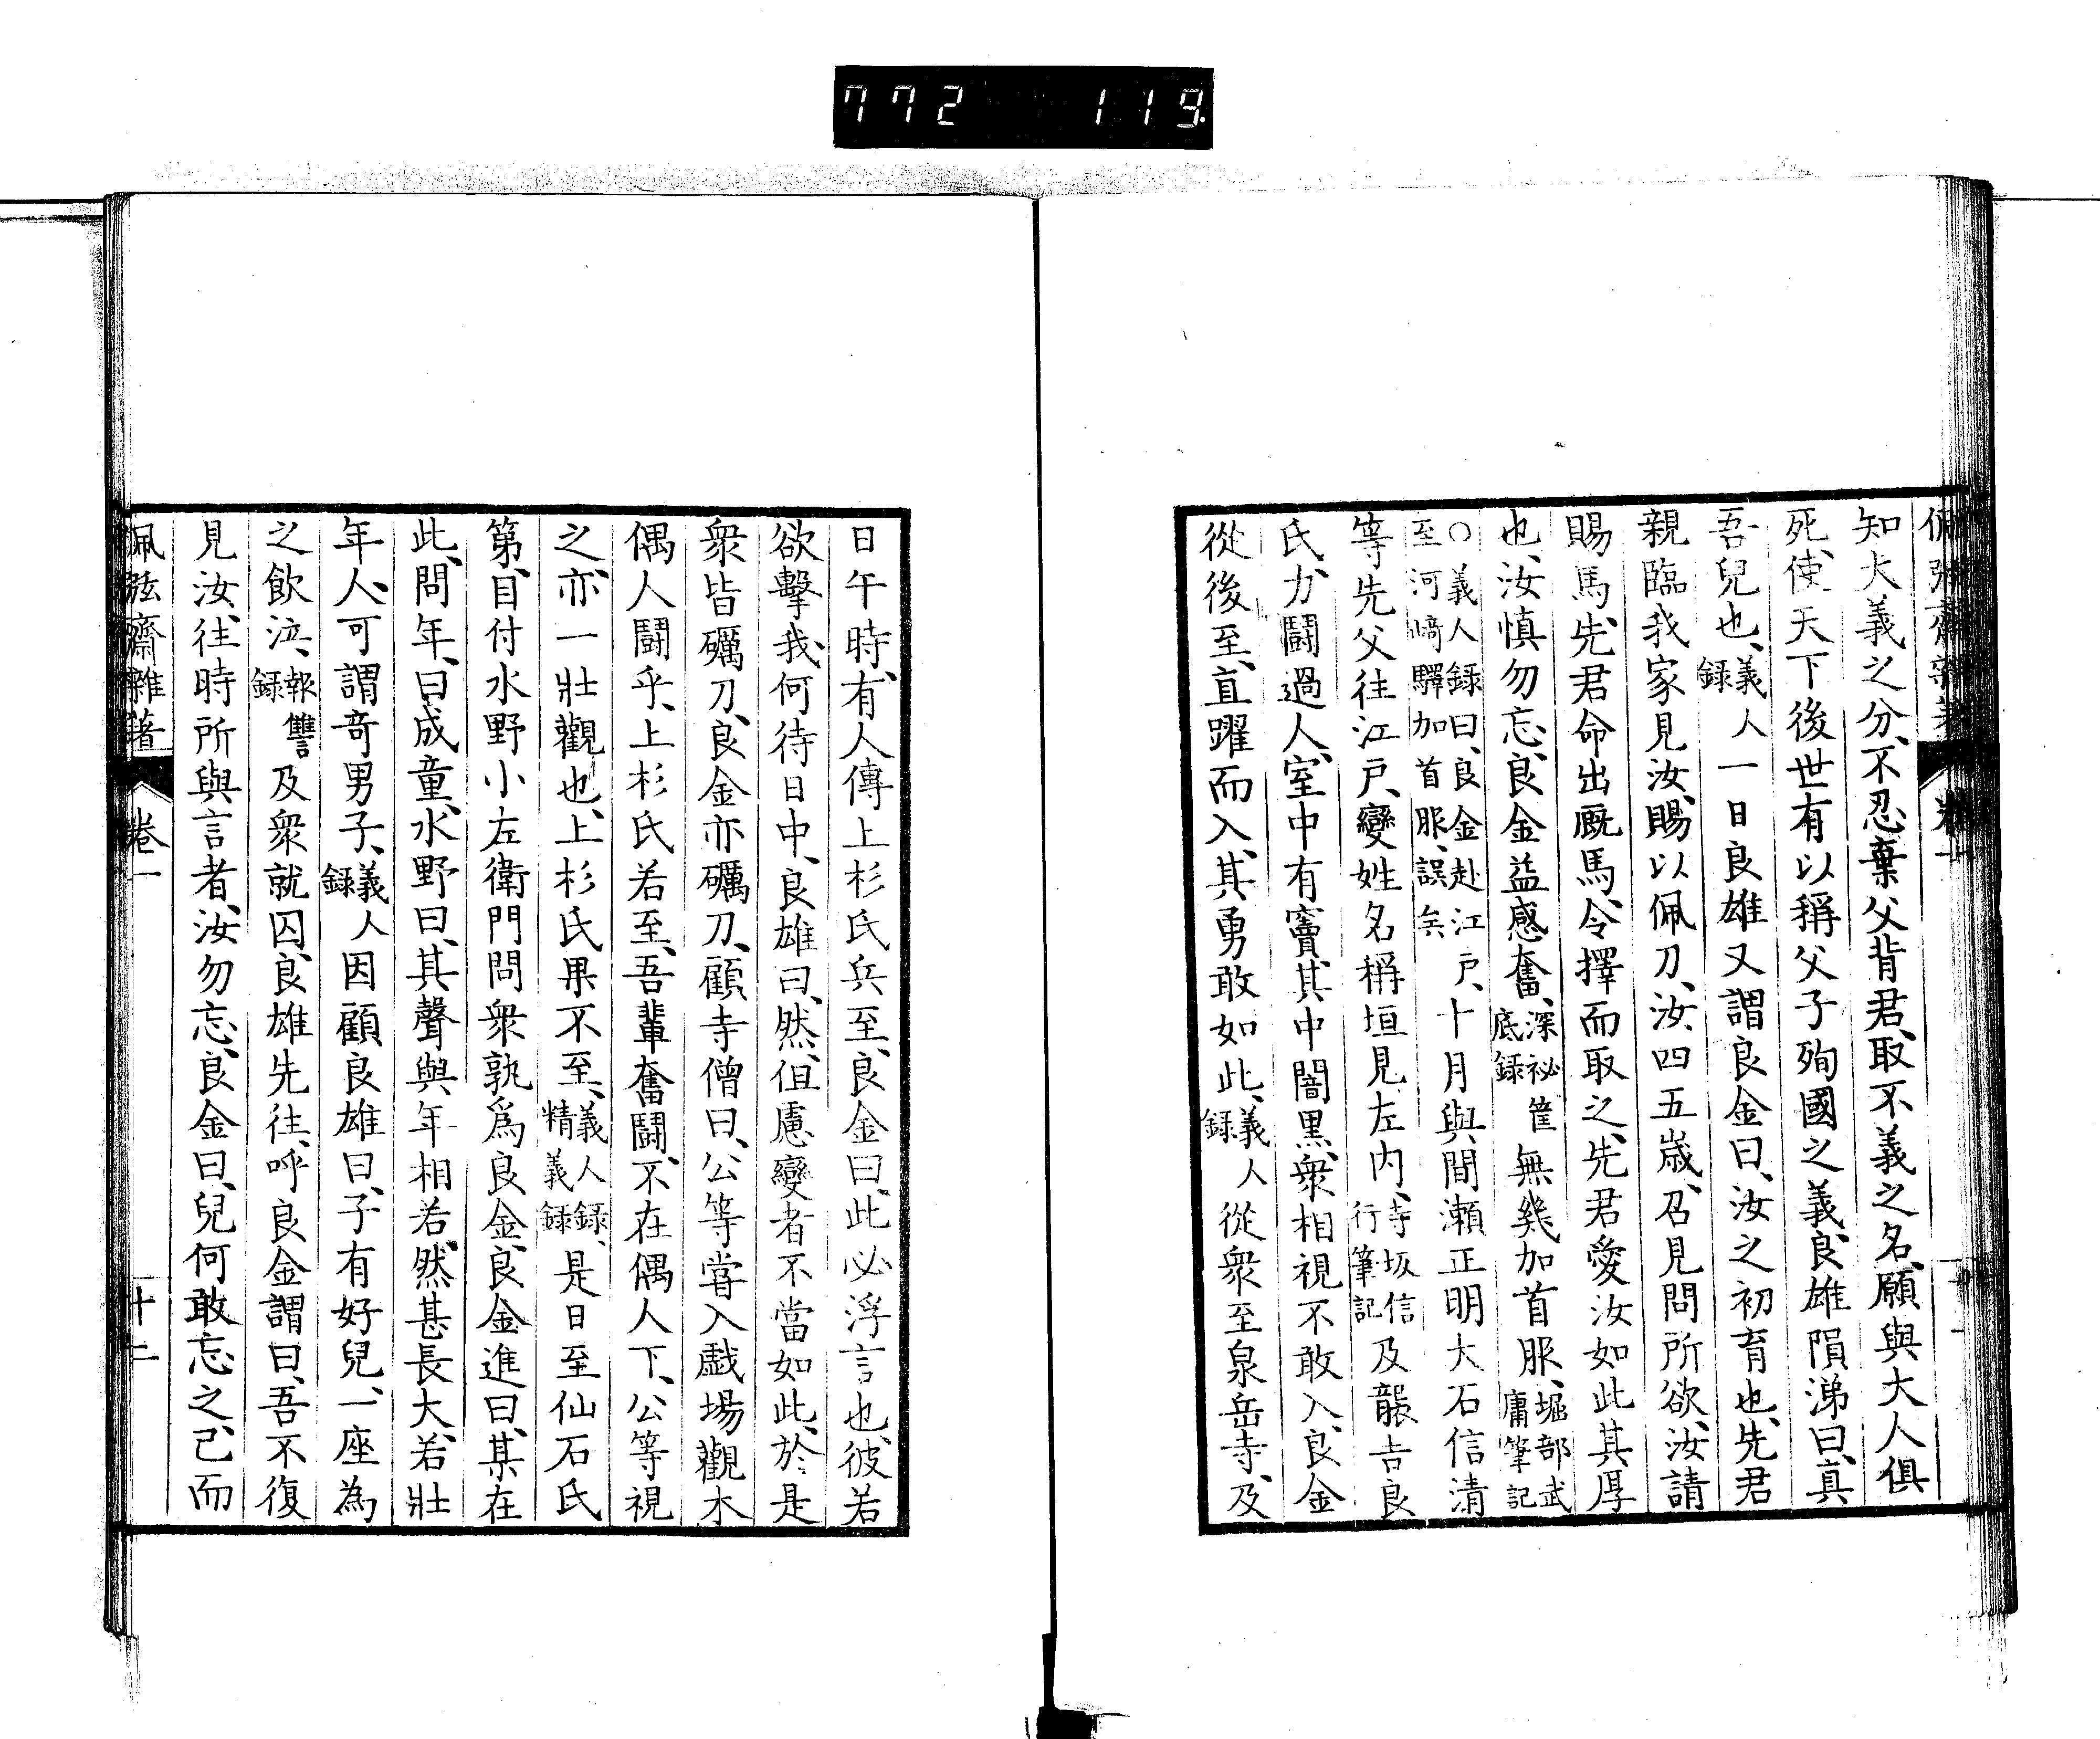 772 119
佩弦齋雜著 卷一
知大義之分、不忍棄父背君、取不義之名、願與大人俱
死、使天下後世有以稱父子殉國之義、良雄隕涕曰、真
吾兒也、義人録一日良雄又謂良金曰、汝之初育也、先君
親臨我家見汝、賜以佩刀、汝四五歳、召見問所欲、汝請
賜馬、先君命出厩馬、令擇而取之、先君愛汝如此其厚
也、汝慎勿忘、良金益感奮、深祕筐底録無幾加首服、堀部武庸筆記
○義人録曰、良金赴江戸、至河﨑驛加首服、誤矣十月與間瀬正明大石信清
等先父往江戸、變姓名稱垣見左内、寺坂信行筆記及襲吉良
氏、力鬪過人、室中有竇、其中闇黒、衆相視不敢入、良金
從後至、直躍而入、其勇敢如此、義人録從衆至泉岳寺、及
日午時、有人傳上杉氏兵至、良金曰、此必浮言也、彼若
欲擊我、何待日中、良雄曰、然、但慮變者不當如此、於是
衆皆礪刀、良金亦礪刀、顧寺僧曰、公等嘗入戯場觀木
偶人鬪乎、上杉氏若至、吾輩奮鬪、不在偶人下、公等視
之、亦一壯觀也、上杉氏果不至、義人録、精義録是日至仙石氏
第、目付水野小左衛門問衆孰爲良金、良金進曰、某在
此、問年、曰成童、水野曰、其聲與年相若、然甚長大、若壯
年人、可謂奇男子、義人録因顧良雄曰、子有好兒、一座為
之飲泣、報讐録及衆就囚、良雄先往、呼良金謂曰、吾不復
見汝、往時所與言者、汝勿忘、良金曰、兒何敢忘之、已而
佩弦齋雜著 卷一 十二